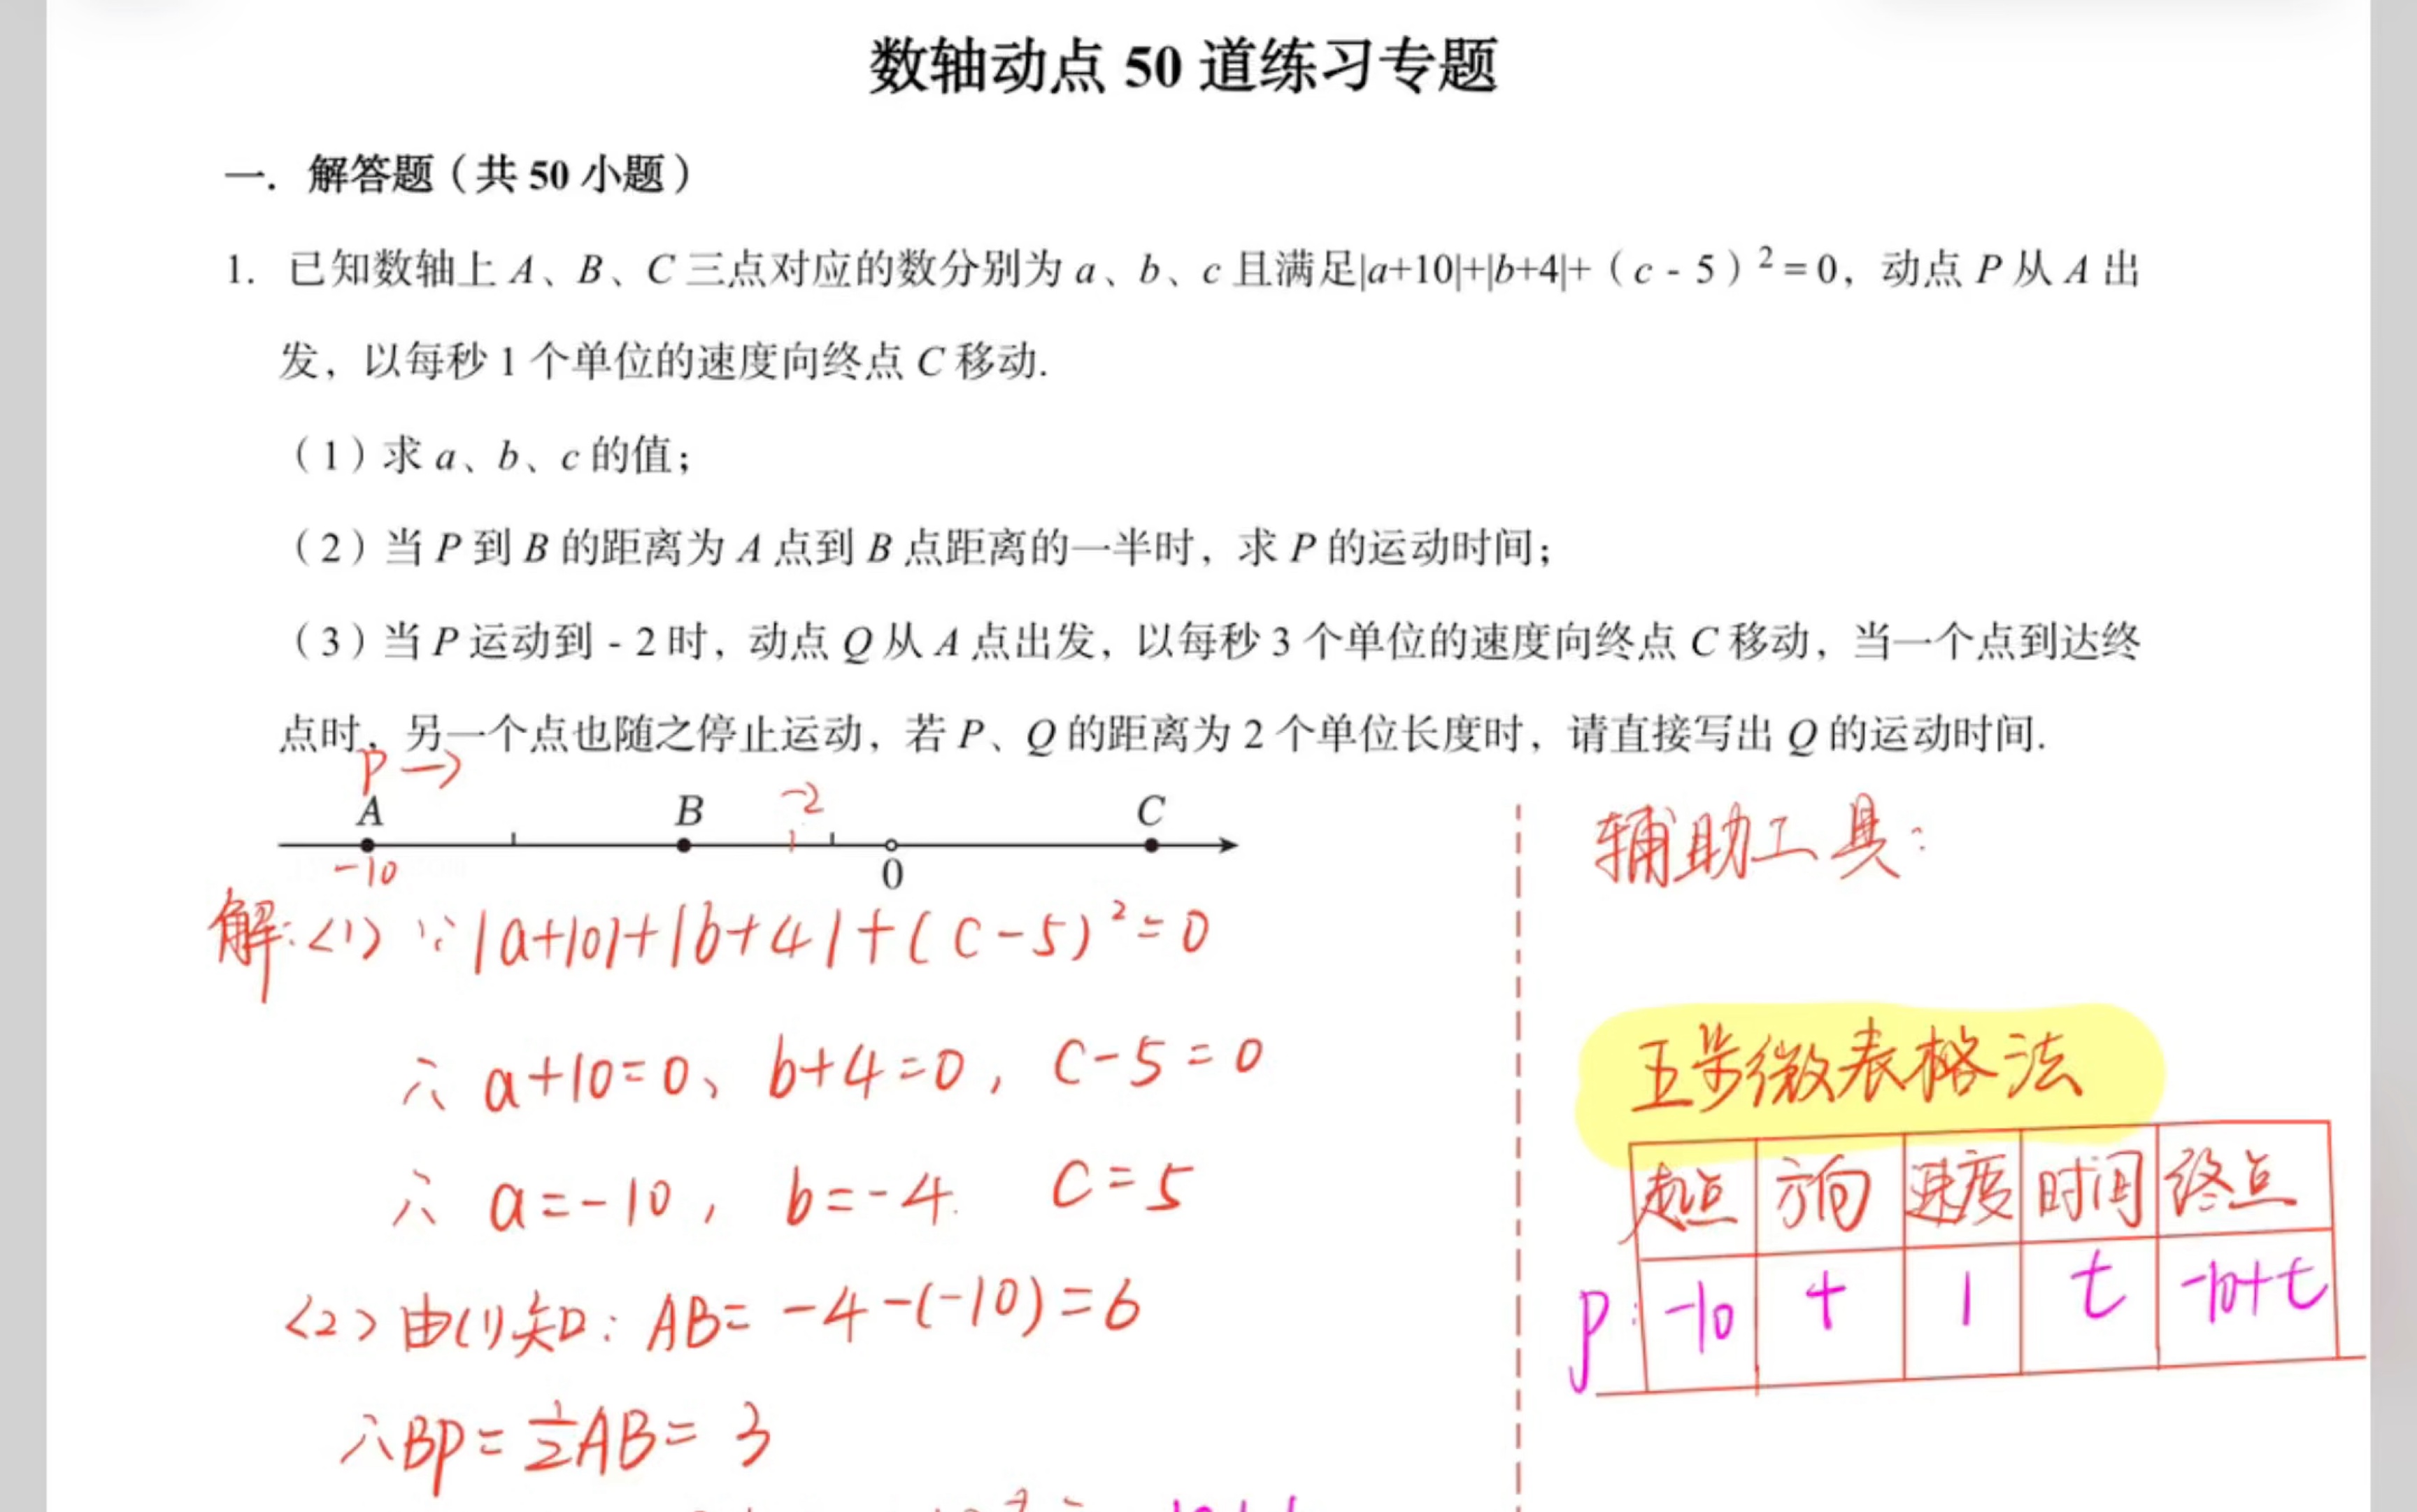 数轴动点 50 道练习专题
一．解答题（共 50 小题）
1. 已知数轴上 A、B、C 三点对应的数分别为 a、b、c 且满足|a+10|+|b+4|+（c - 5）²=0，动点 P 从 A 出
发，以每秒 1 个单位的速度向终点 C 移动.
（1）求 a、b、c 的值；
（2）当 P 到 B 的距离为 A 点到 B 点距离的一半时，求 P 的运动时间；
（3）当 P 运动到 - 2 时，动点 Q 从 A 点出发，以每秒 3 个单位的速度向终点 C 移动，当一个点到达终
点时，另一个点也随之停止运动，若 P、Q 的距离为 2 个单位长度时，请直接写出 Q 的运动时间.
P→
A B -2 C
-10 0
解:<1> ∵|a+10|+|b+4|+(c-5)²=0
∴ a+10=0、b+4=0, c-5=0
∴ a=-10, b=-4. c=5
<2> 由(1)知: AB= -4-(-10)=6
∴BP=½AB=3
辅助工具:
五步微表格法
起点 方向 速度 时间 终点
P: -10 + 1 t -10+t